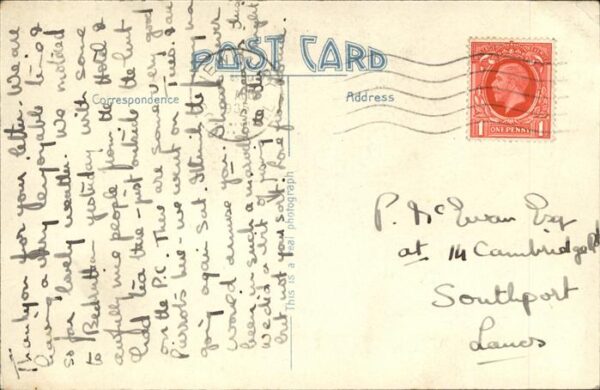 POST CARD
Correspondence
Address
This is a real photograph
ONE PENNY
1 1
Thankyou for your letter. We are
having a very enjoyable time &
so far lovely weather. We motored
to Bedruthan yesterday with some
awfully nice people from the Hotel &
had tea there - just outside the hut
on the P.C. There are some very good
Pierrots here - we went on Tues. &
going again Sat. I think the
would amuse you. Shark
been in such a marvellous
We did a sort of the other night
but not your sort. Love from
P. McEwan Esq
at 14 Cambridge Rd
Southport
Lancs